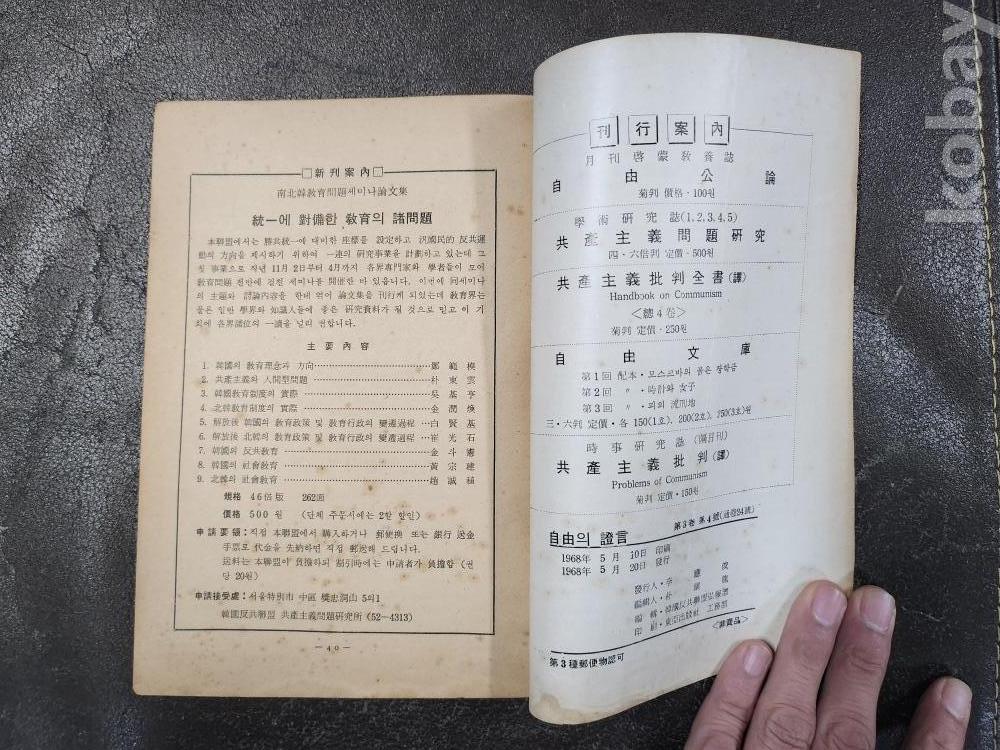 新刊案內
南北韓敎育問題세미나論文集
統一에 對備한 敎育의 諸問題
本聯盟에서는 勝共統一에 대비한 座標를 設定하고 汎國民的 反共運
動의 方向을 제시하기 위하여 一連의 硏究事業을 計劃하고 있는데 그
첫 事業으로 작년 11月 2日부터 4月까지 各界專門家와 學者들이 모여
敎育問題 전반에 걸친 세미나를 開催한 바 있읍니다. 이번에 同세미나
의 主題와 討論內容을 한데 엮어 論文集을 刊行케 되었는데 敎育界는
물론 일반 學界와 知識人들에 좋은 硏究資料가 될 것으로 믿고 이 기
회에 各界諸位의 一讀을 널리 권합니다.
主要內容
1. 韓國의 敎育理念과 方向 鄭範模
2. 共產主義와 人間型問題 朴東雲
3. 韓國敎育制度의 實際 吳基亨
4. 北韓敎育制度의 實際 金潤煥
5. 解放後 韓國의 敎育政策 및 敎育行政의 變遷過程 白賢基
6. 解放後 北韓의 敎育政策 및 敎育行政의 變遷過程 崔光石
7. 韓國의 反共敎育 金斗憲
8. 韓國의 社會敎育 黃宗建
9. 北韓의 社會敎育 趙誠植
規格 46倍版 262面
價格 500원 (단체 주문시에는 2할 할인)
申請要領: 직접 本聯盟에서 購入하거나 郵便換 또는 銀行 送金
手票로 代金을 先納하면 직접 郵送해 드립니다.
送料는 本聯盟이 負擔하되 割引時에는 申請者가 負擔함 (권
당 20원)
申請接受處: 서울特別市 中區 奬忠洞山 5의1
韓國反共聯盟 共產主義問題硏究所 (52—4313)
— 40 —
刊行案內
月刊啓蒙敎養誌
自由公論
菊判 價格・100원
學術硏究誌(1,2,3,4,5)
共產主義問題硏究
四・六倍判 定價・500원
共產主義批判全書(譯)
Handbook on Communism
<總4卷>
菊判 定價・250원
自由文庫
第1回 配本・모스크바의 붉은 장학금
第2回 〃・時計와 女子
第3回 〃・피의 流刑地
三・六判 定價・各 150(1호), 200(2호), 250(3호)원
時事硏究誌 (隔月刊)
共產主義批判(譯)
Problems of Communism
菊判 定價・150원
自由의 證言
第3卷 第4號(通卷94號)
1968年 5月 10日 印刷
1968年 5月 20日 發行
發行人・李應俊
編輯人・朴
編輯・韓國反共聯盟弘報部
印刷・東亞出版社 工務部
<非賣品>
第3種郵便物認可
kobay